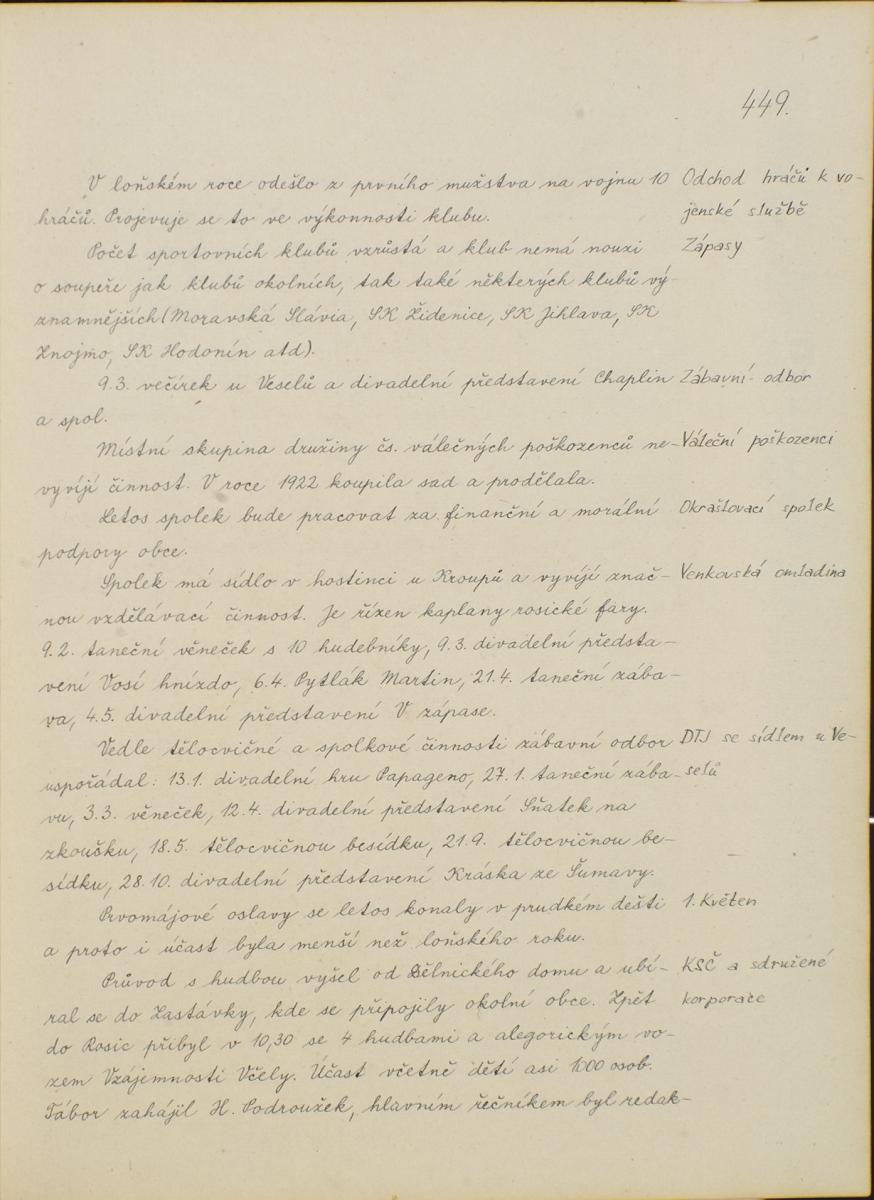 449.
V loňském roce odešlo z prvního mužstva na vojnu 10
Odchod hráčů k vo-
hráčů. Projevuje se to ve výkonnosti klubu.
jenské službě
Počet sportovních klubů vzrůstá a klub nemá nouzi
Zápasy
o soupeře jak klubů okolních, tak také některých klubů vý-
znamnějších (Moravská Slávia, SK Židenice, SK Jihlava, SK
Znojmo, SK Hodonín atd).
9.3. večírek u Veselů a divadelní představení Chaplin
Zábavní odbor
a spol.
Místní skupina družiny čs. válečných poškozenců ne-
Váleční poškozenci
vyvíjí činnost. V roce 1922 koupila sad a prodělala.
Letos spolek bude pracovat za finanční a morální
Okrašlovací spolek
podpory obce.
Spolek má sídlo v hostinci u Kroupů a vyvíjí znač-
Venkovská omladina
nou vzdělávací činnost. Je řízen kaplany rosické fary.
9.2. taneční věneček s 10 hudebníky, 9.3. divadelní předsta-
vení Vosí hnízdo, 6.4. Pytlák Martin, 21.4. taneční zába-
va, 4.5. divadelní představení V zápase.
Vedle tělocvičné a spolkové činnosti zábavní odbor
DTJ se sídlem u Ve-
uspořádal: 13.1. divadelní hru Papageno, 27.1. taneční zába-
selů
vu, 3.3. věneček, 12.4. divadelní představení Sňatek na
zkoušku, 18.5. tělocvičnou besídku, 21.9. tělocvičnou be-
sídku, 28.10. divadelní představení Kráska ze Šumavy.
Prvomájové oslavy se letos konaly v prudkém dešti
1. Květen
a proto i účast byla menší než loňského roku.
Průvod s hudbou vyšel od Dělnického domu a ubí-
KSČ a sdružené
ral se do Zastávky, kde se připojily okolní obce. Zpět
korporace
do Rosic přibyl v 10,30 se 4 hudbami a alegorickým vo-
zem Vzájemnosti Včely. Účast včetně dětí asi 1000 osob.
Tábor zahájil H. Podroužek, hlavním řečníkem byl redak-